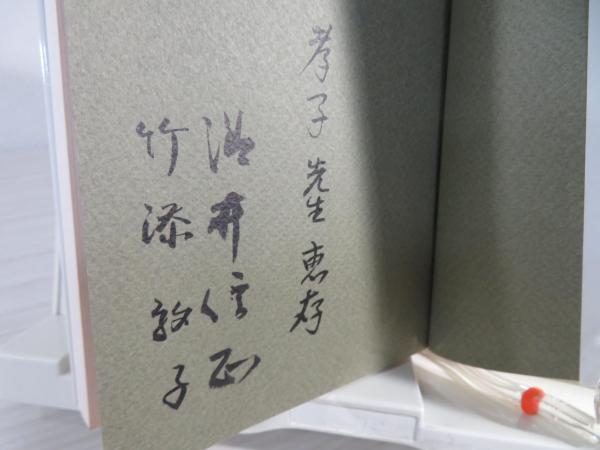 孝子先生 恵存
温井信正
竹添敦子